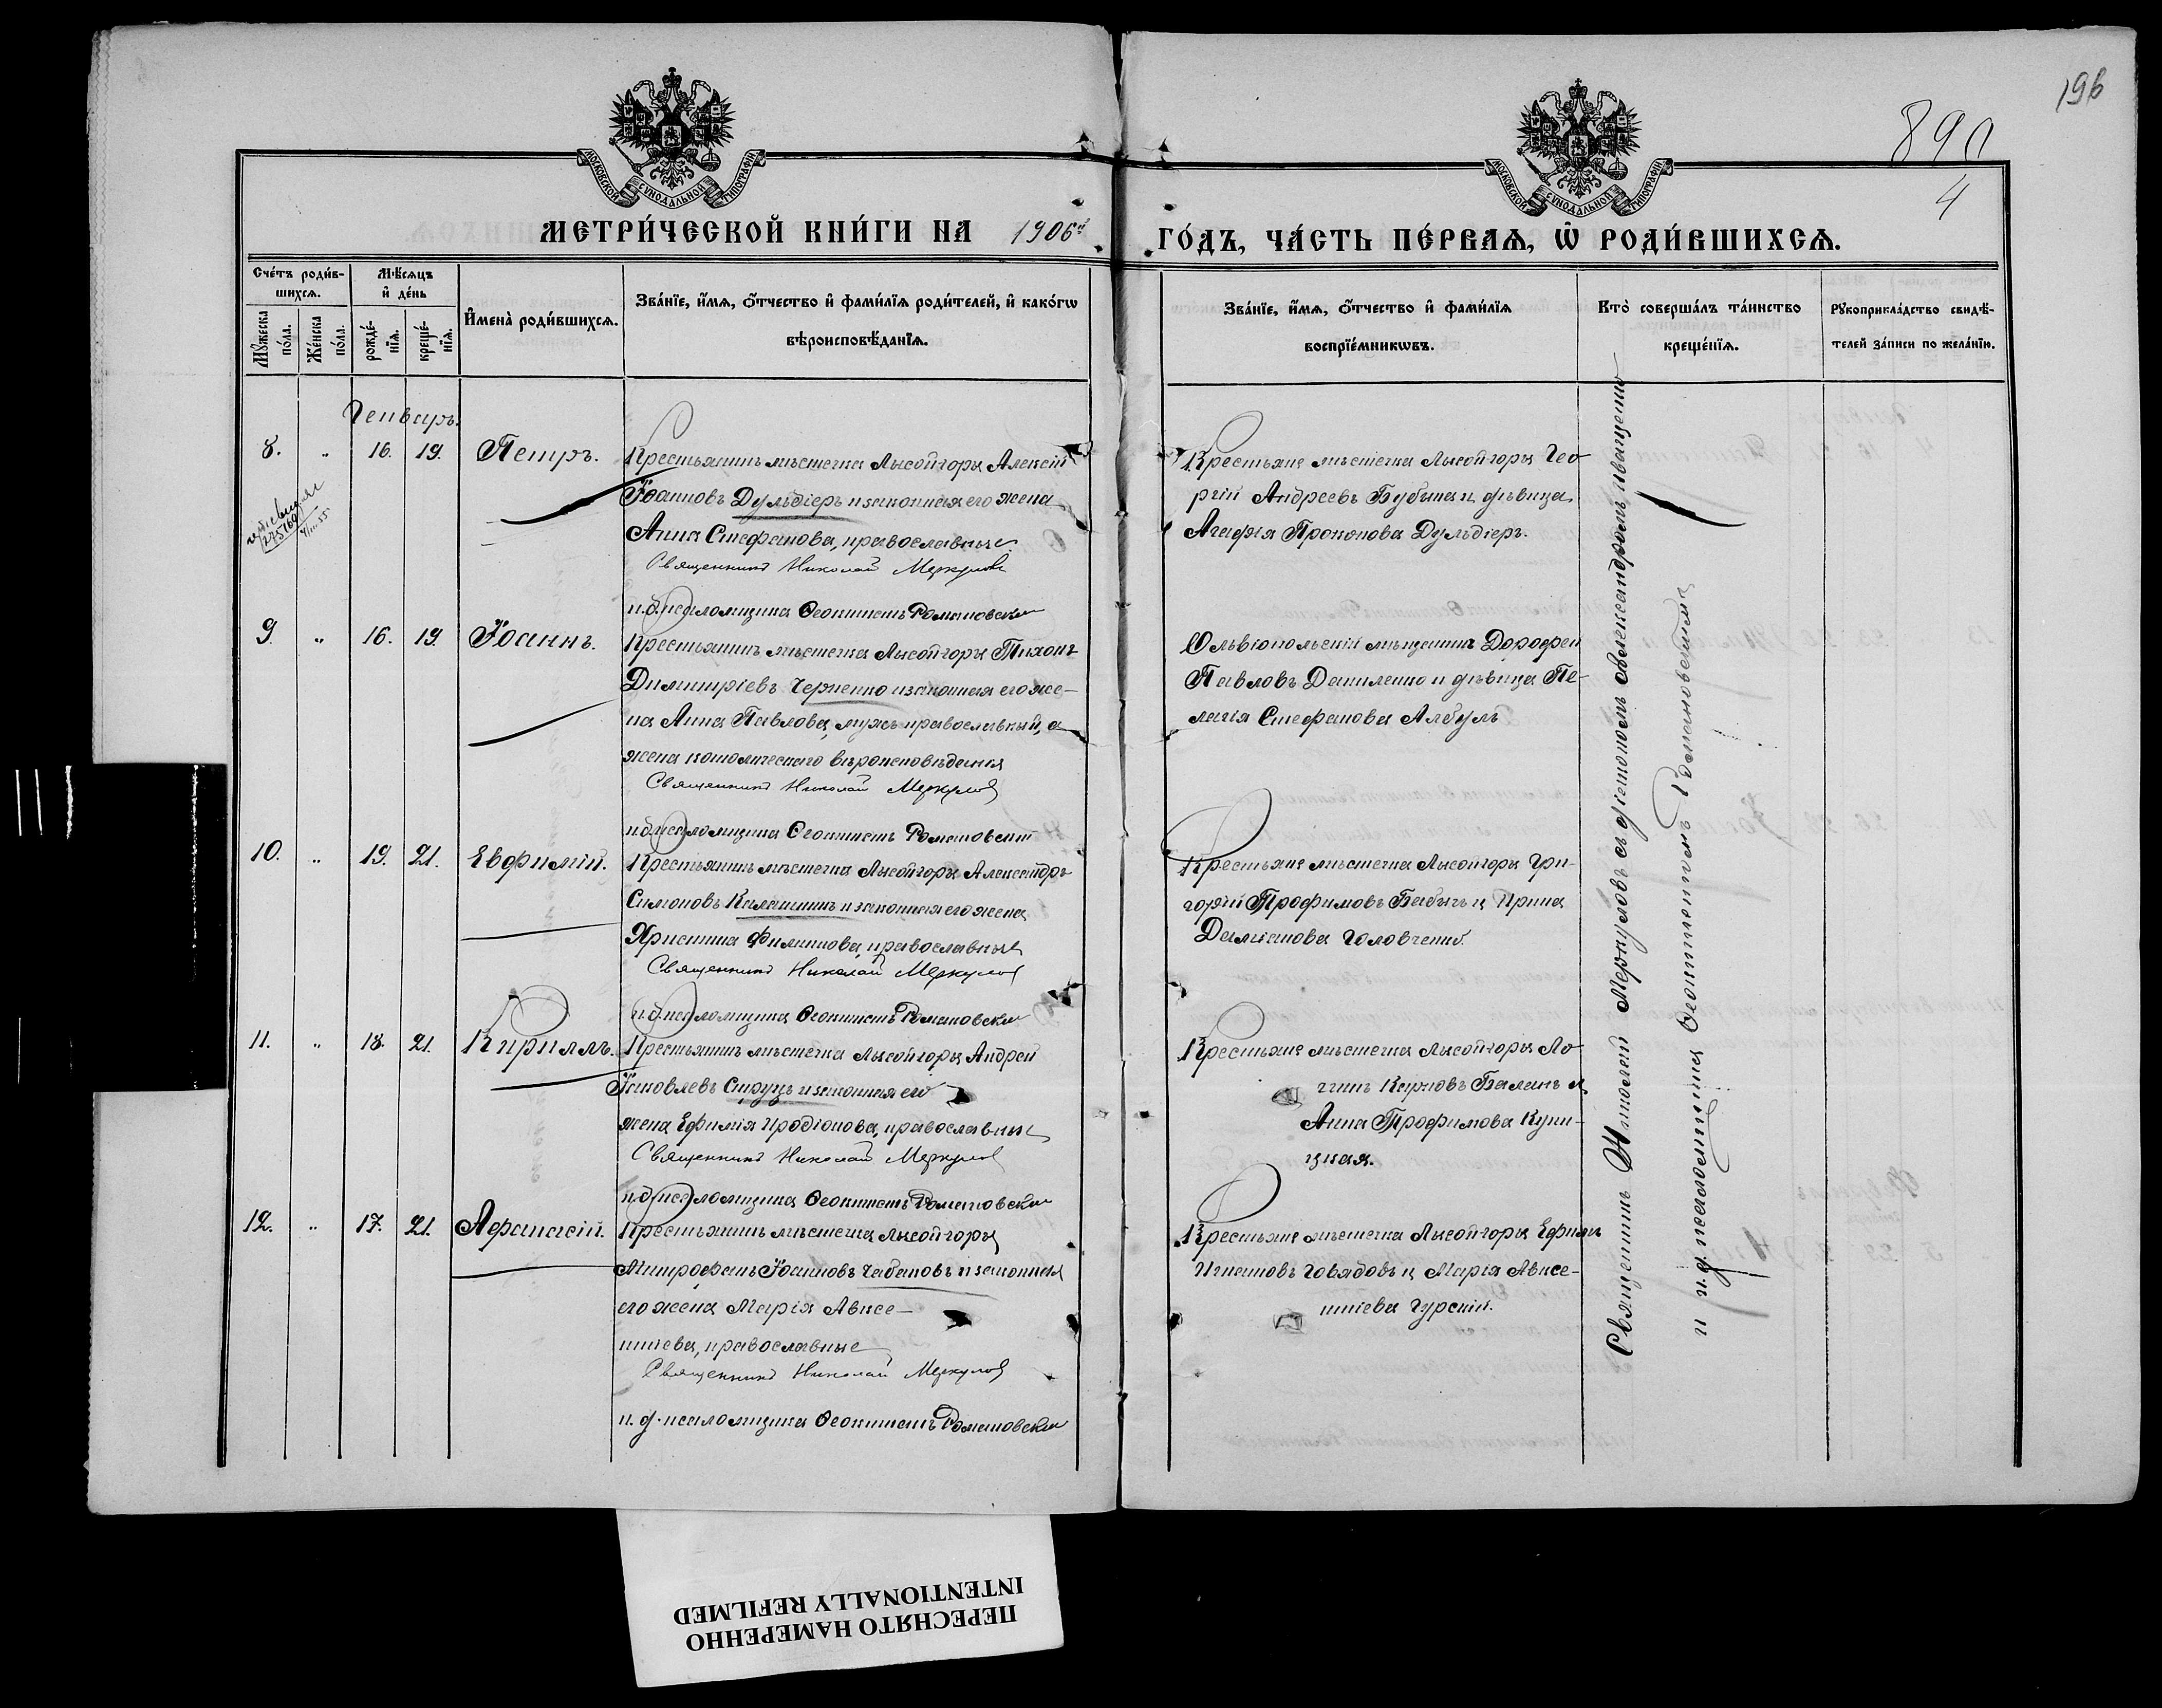 196
890
4
МОСКОВСКОЙ СУНОДАЛЬНОЙ ТИПОГРАФІИ
МОСКОВСКОЙ СУНОДАЛЬНОЙ ТИПОГРАФІИ
МЕТРИ́ЧЕСКОЙ КНИ́ГИ НА 1906й
ГО́ДЪ, ЧА́СТЬ ПЕ́РВАѦ, Ѡ҆ РОДИ́ВШИХСѦ.
Сче́тъ роди́в-
шихсѧ.
Мѣ́сѧцъ
и҆ де́нь
Мꙋ́жеска по́ла.
Же́нска по́ла.
рожде́-
нїѧ.
креще́-
нїѧ.
И҆мена̀ роди́вшихсѧ.
Зва́нїе, и҆́мѧ, ѻ҆́тчество и҆ фами́лїѧ роди́телей, и҆ како́гѡ
вѣроисповѣ́данїѧ.
Зва́нїе, и҆́мѧ, ѻ҆́тчество и҆ фами́лїѧ
воспрїе́мникѡвъ.
Кто̀ соверша́лъ та́инство
креще́нїѧ.
Рꙋкоприкла́дство свидѣ́-
телей за́писи по жела́нїю.
Генварь.
8. " 16. 19. Петръ.
Крестьянинъ мѣстечка Лысой горы Алексій
Іоанновъ Дульдіеръ и законная его жена
Анна Стефанова, православные.
Священникъ Николай Меркулов
и. д. псаломщика Ѳеоктистъ Романовскій
Крестьяне мѣстечка Лысой горы Гео
ргій Андреевъ Бубына и дѣвица
Агафія Прокопова Дульдіеръ.
9. " 16. 19. Іоаннъ.
Крестьянинъ мѣстечка Лысой горы Тихонъ
Димитріевъ Черненко и законная его же-
на Анна Павлова, мужъ православный, а
жена католическаго вѣроисповѣданія
Священникъ Николай Меркулов
и. д. псаломщика Ѳеоктистъ Романовскій
Ольвіопольскій мѣщанинъ Дорофей
Павловъ Даниленко и дѣвица Пе-
лагія Стефанова Албулъ
10. " 19. 21. Евфимій.
Крестьянинъ мѣстечка Лысой горы Александръ
Симоновъ Калашникъ и законная его жена
Христина Филиппова, православные
Священникъ Николай Меркулов
и. д. псаломщика Ѳеоктистъ Романовскій
Крестьяне мѣстечка Лысой горы Гри-
горій Трофимовъ Бабычъ и Ирина
Даміанова Головченко.
11. " 18. 21. Кириллъ.
Крестьянинъ мѣстечка Лысой горы Андрей
Іаковлевъ Струцъ и законная его
жена Ефимія Иродіонова, православные
Священникъ Николай Меркулов
и. д. псаломщика Ѳеоктистъ Романовскій
Крестьяне мѣстечка Лысой горы Ло-
гинъ Карповъ Баланъ и
Анна Трофимова Купи-
цкая.
12. " 17. 21. Аѳанасій.
Крестьянинъ мѣстечка Лысой горы
Митрофанъ Іоанновъ Чабановъ и законная
его жена Марія Авксе-
нтіева, православные
Священникъ Николай Меркулов
и. д. псаломщика Ѳеоктистъ Романовскій
Крестьяне мѣстечка Лысой горы Ефимъ
Игнатовъ Говядовъ и Марія Авксе-
нтіева Гурскій.
Священникъ Николай Меркуловъ съ діакономъ Александромъ Иващенко
и и. д. псаломщика Ѳеоктистомъ Романовскимъ
ПЕРЕСНЯТО НАМЕРЕННО
INTENTIONALLY REFILMED